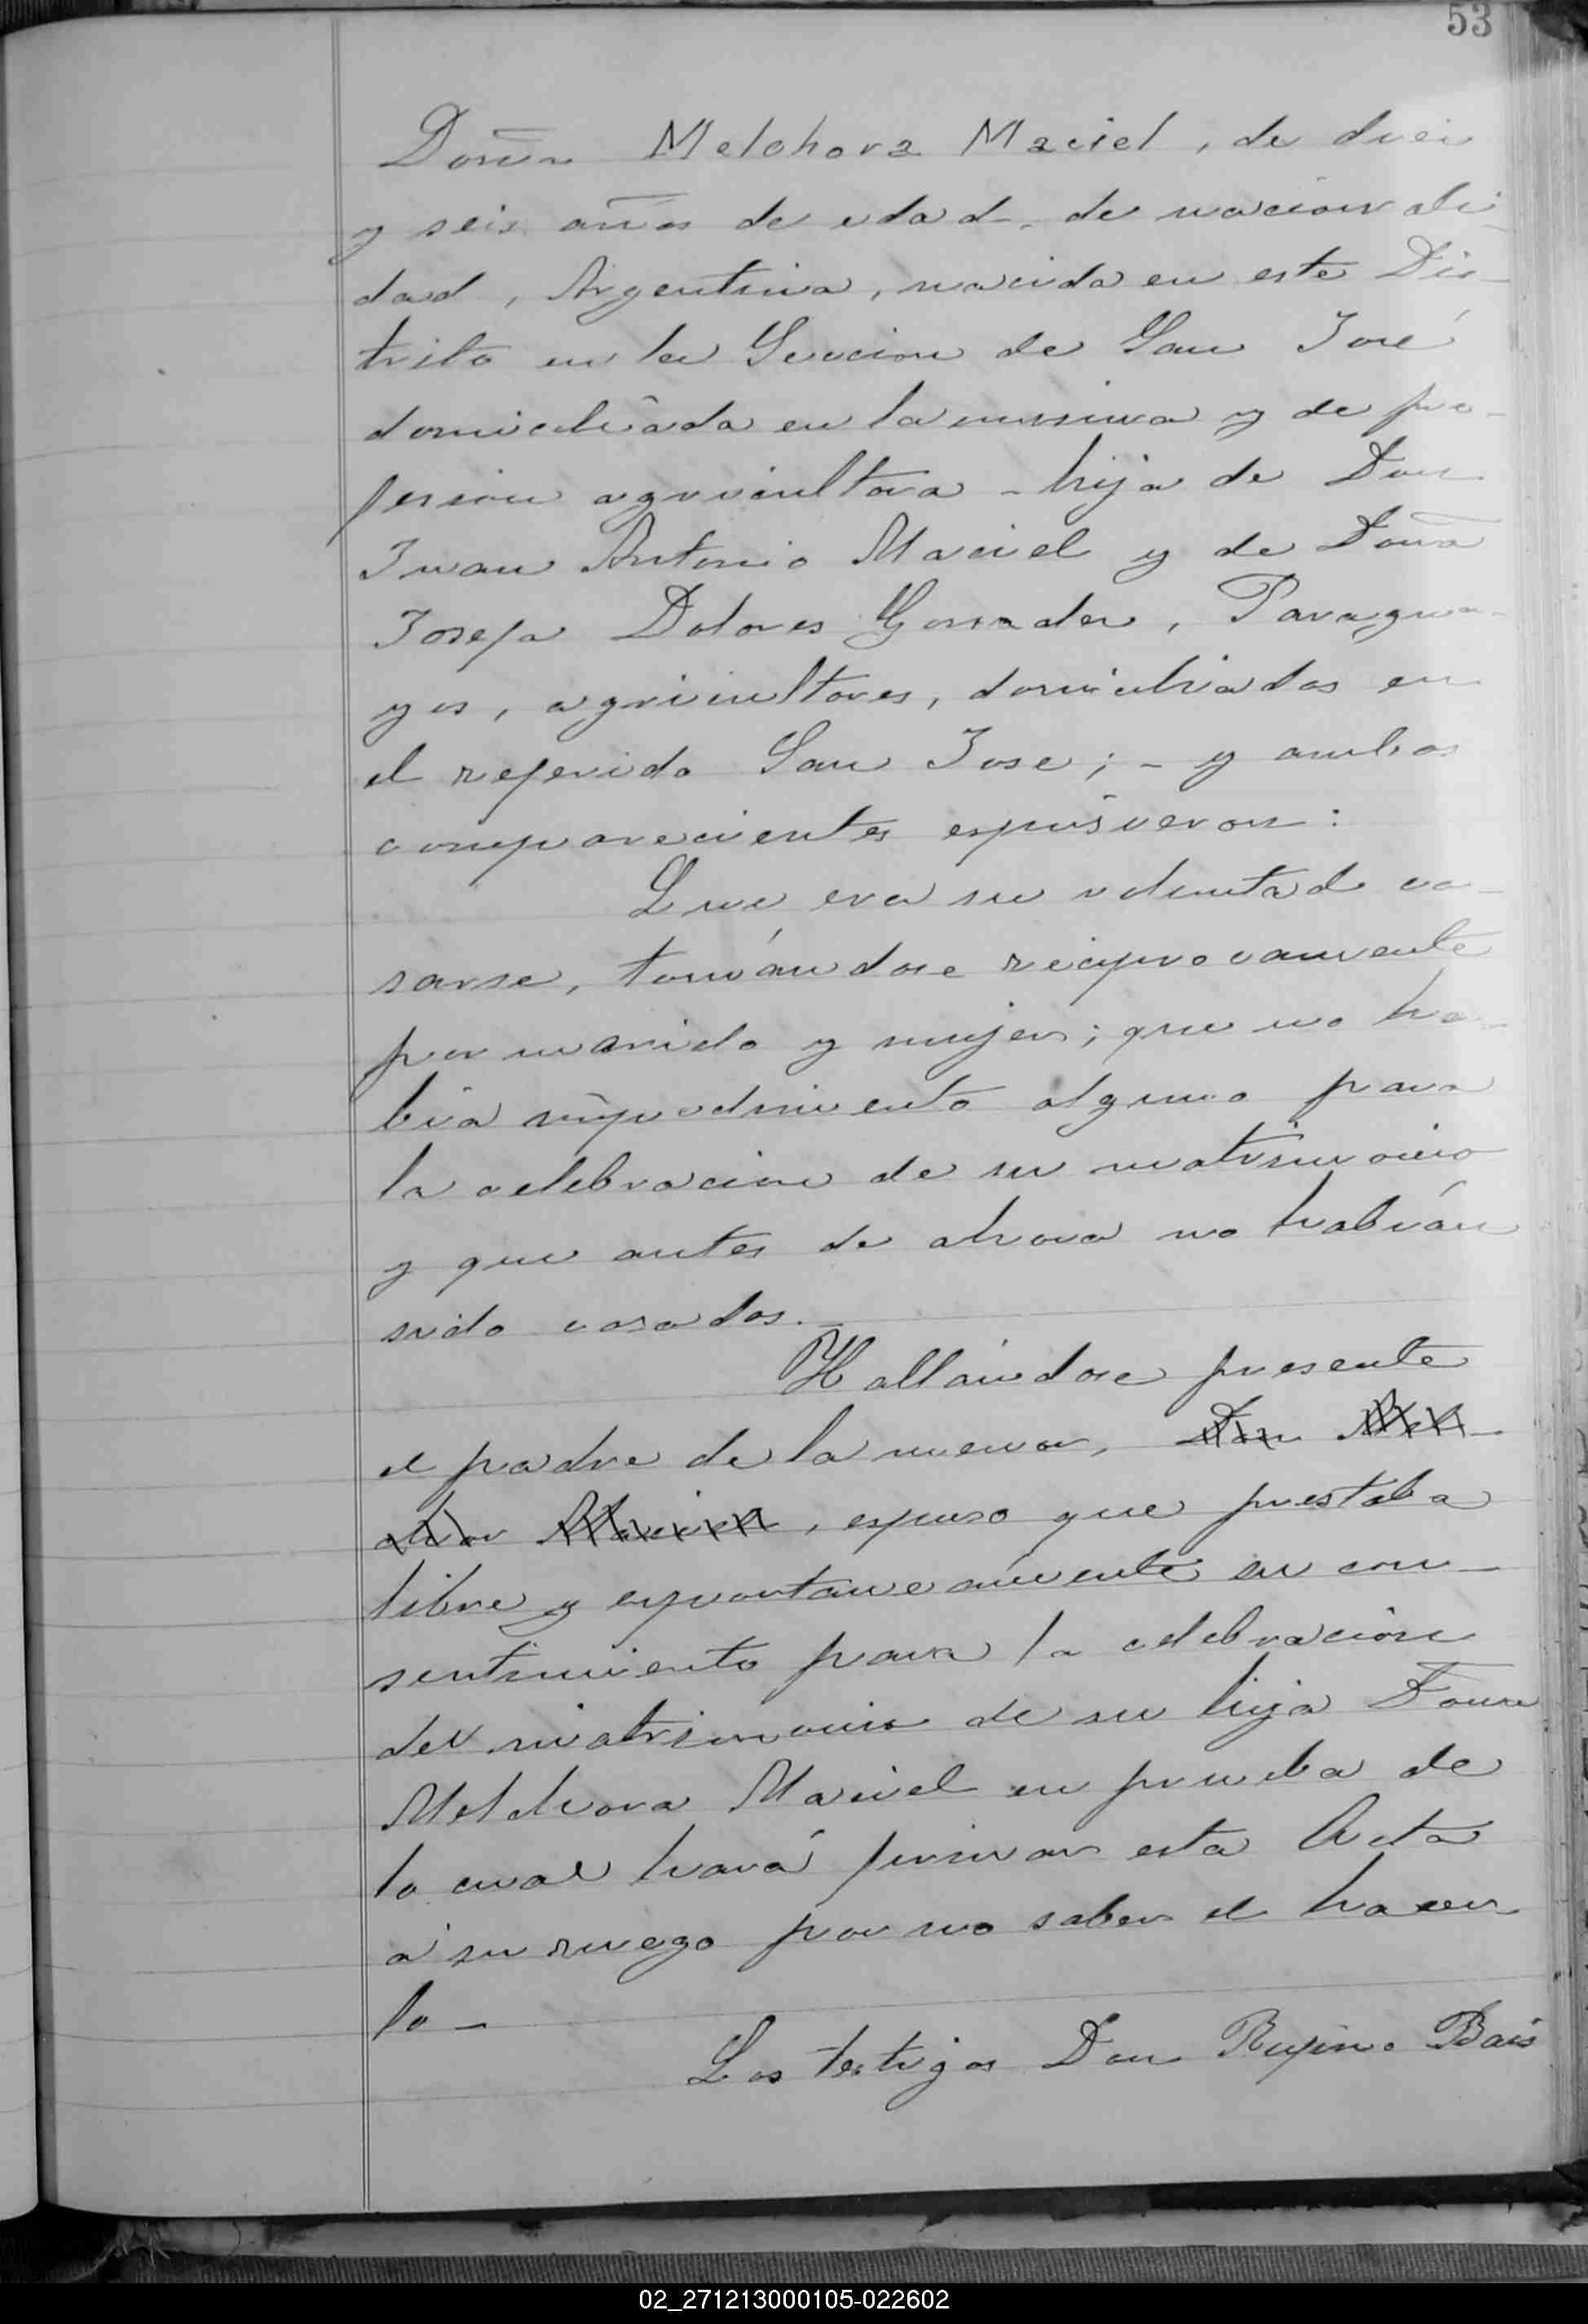 53
Doña Melchora Maciel, de diez
y seis años de edad, de nacionali-
dad, Argentina, nacida en este Dis-
trito en la Seccion de San José
domiciliada en la misma y de pro-
fesion agricultora - hija de Don
Juan Antonio Maciel y de Doña
Josefa Dolores Gonzalez, Paragua-
yos, agricultores, domiciliados en
el referido San Jose; - y ambos
comparecientes espusieron:
Que era su voluntad ca-
sarse, tomándose reciprocamente
por marido y mujer; que no ha-
bia impedimento alguno para
la celebracion de su matrimonio
y que antes de ahora no habián
sido casados. -
Hallándose presente
el padre de la menor, Don Mel-
chor Maciel, espuso que prestaba
libre y espontaneamente su con-
sentimiento para la celebracion
del matrimonio de su hija Doña
Melchora Maciel en prueba de
lo cual hará firmar esta Acta
á su ruego por no saber el hacer
lo -
Los testigos Don Rufino Bais
02_271213000105-022602